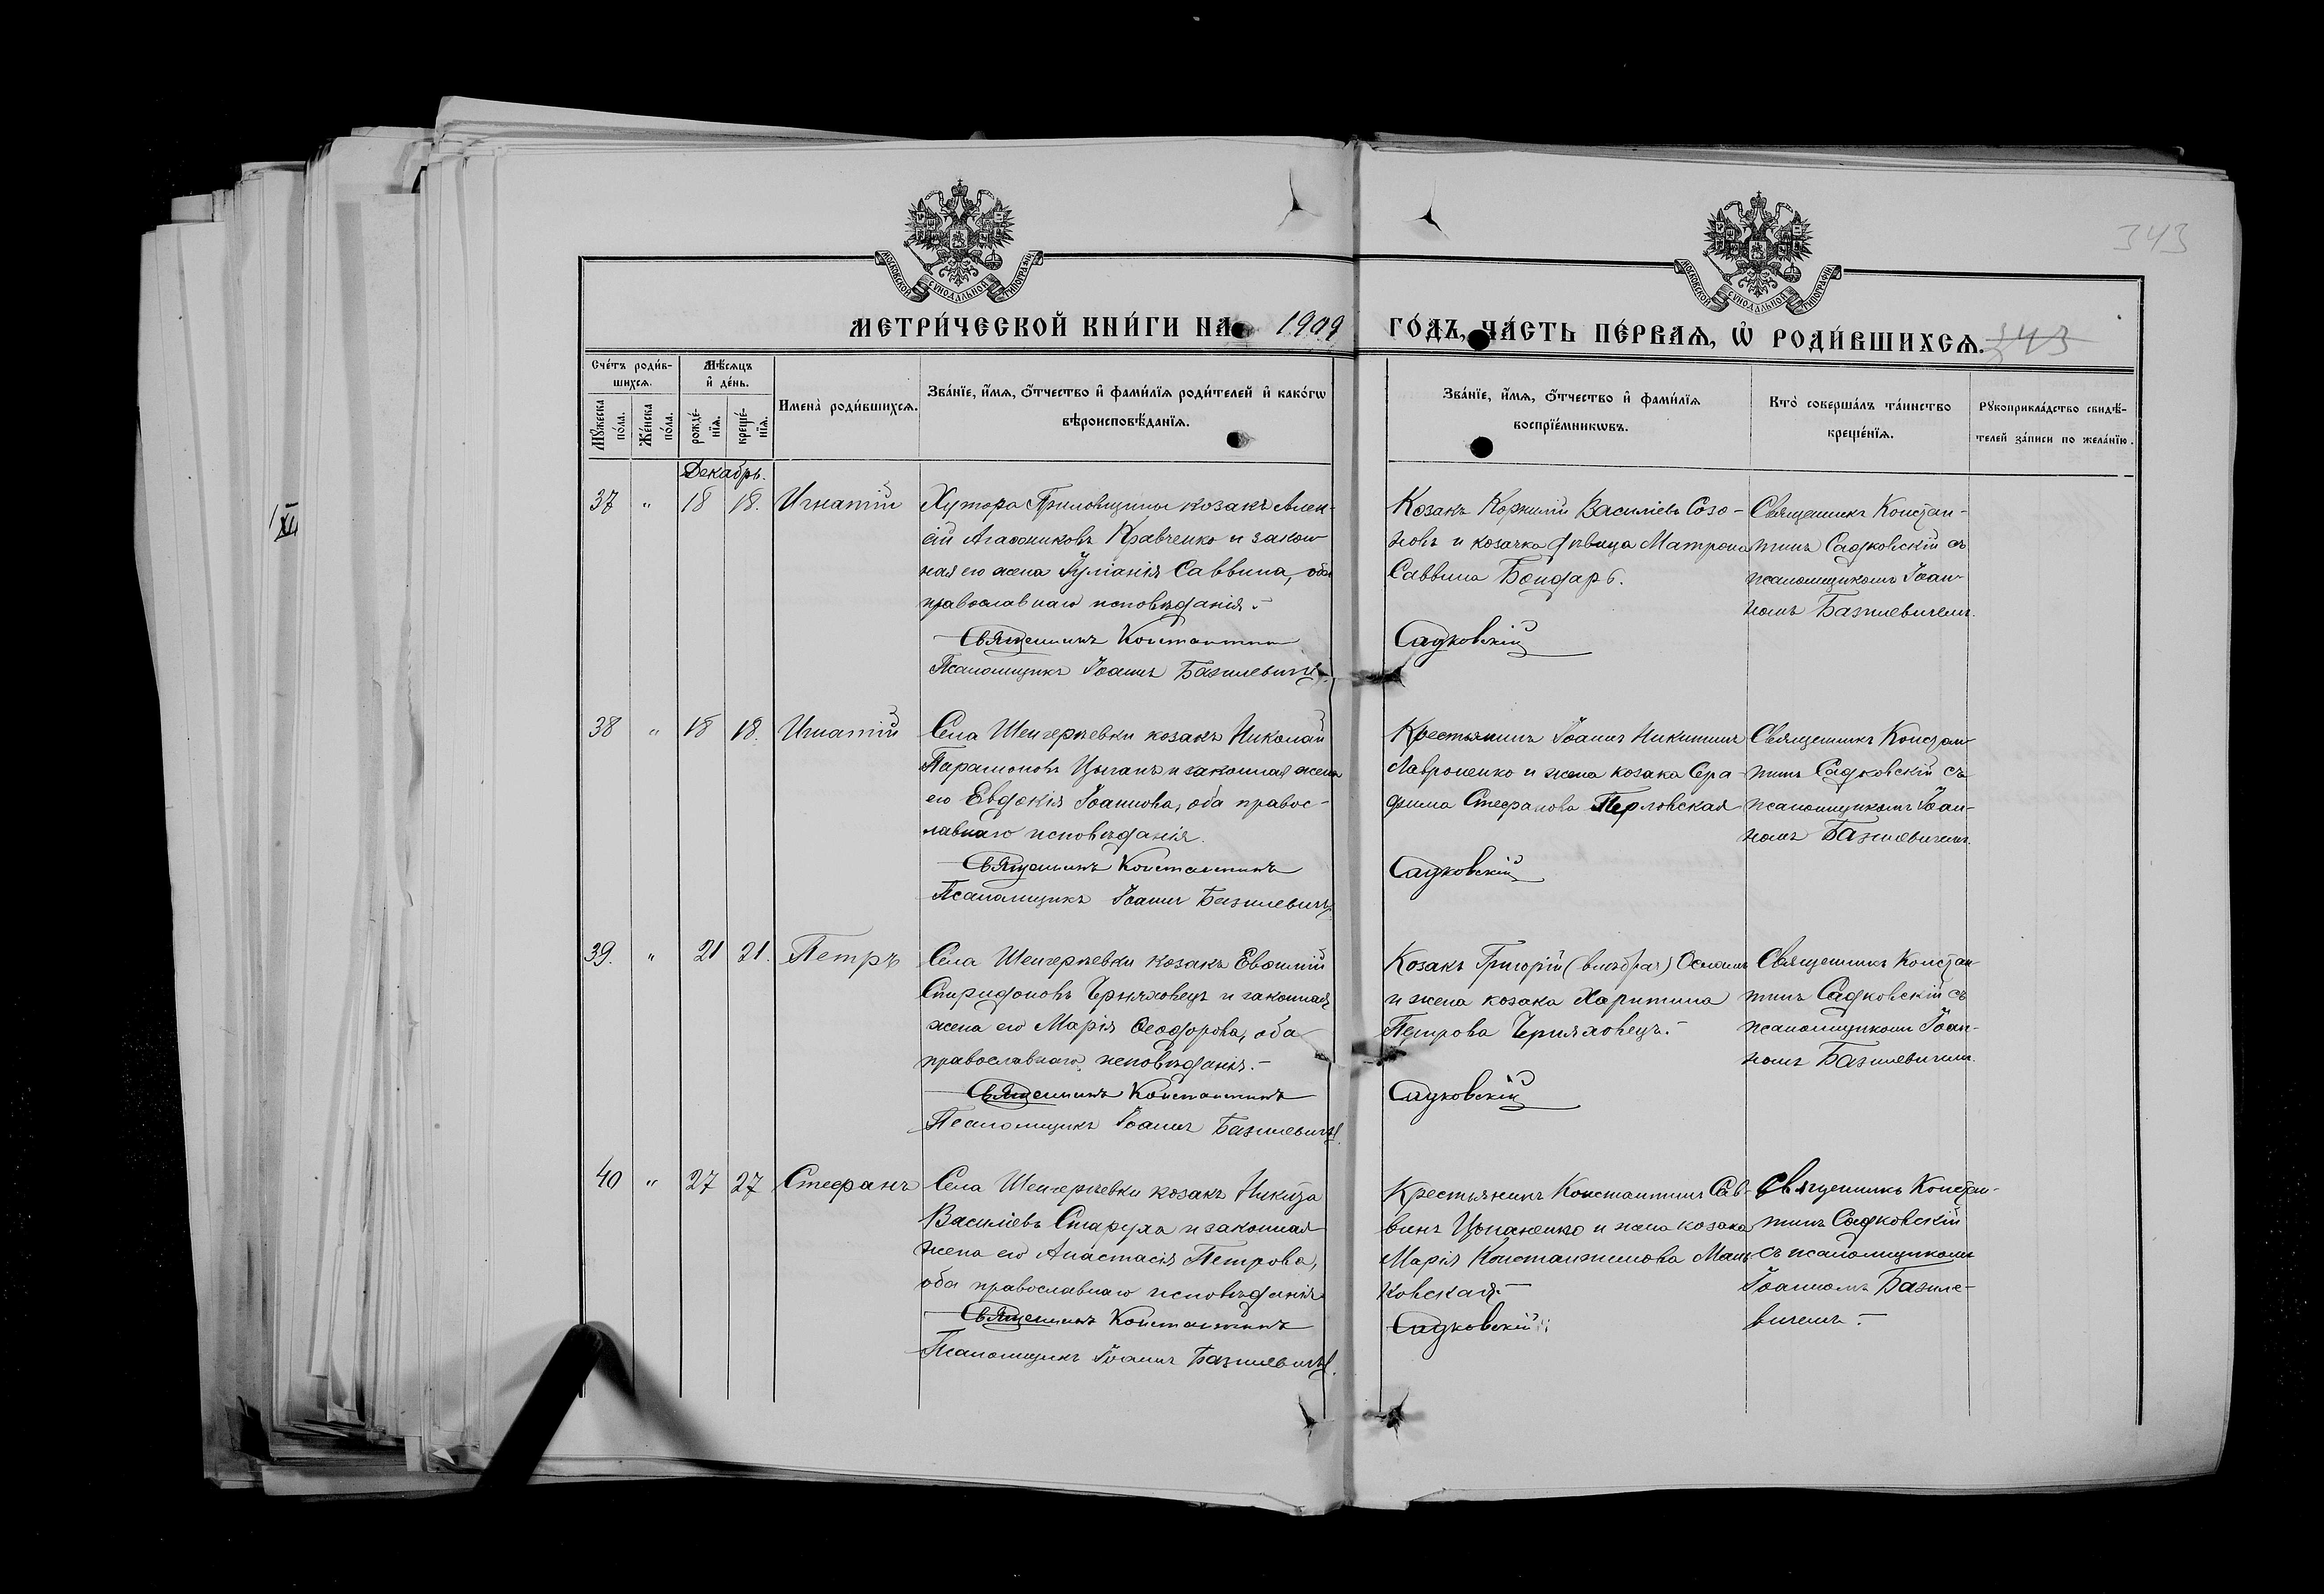 343
МОСКОВСКОЙ СѴНОДАЛЬНОЙ ТИПОГРАФІИ
МОСКОВСКОЙ СѴНОДАЛЬНОЙ ТИПОГРАФІИ
МЕТРИ́ЧЕСКОЙ КНИ́ГИ НА 1909 ГО́ДЪ, ЧА́СТЬ ПЕ́РВАѦ, Ѡ҆ РОДИ́ВШИХСѦ. 343
Сче́тъ роди́в-
шихсѧ.
Мꙋ́жеска
по́ла.
Же́нска
по́ла.
Мѣ́сѧцъ
и҆ де́нь.
рожде́-
нїѧ.
креще́-
нїѧ.
Имена̀ роди́вшихсѧ.
Зва́нїе, и҆́мѧ, ѻ҆́тчество и҆ фами́лїѧ роди́телей и҆ како́гѡ
вѣроисповѣ́данїѧ.
Зва́нїе, и҆́мѧ, ѻ҆́тчество и҆ фами́лїѧ
воспрїе́мникѡвъ.
Кто̀ соверша́лъ та́инство
креще́нїѧ.
Рꙋкоприкла́дство свидѣ́-
телей за́писи по жела́нїю.
Декабрь.
37 " 18 18. Игнатій
Хутора козакъ Алек-
сій Агаѳониковъ Кравченко и закон
ная его жена Іуліанія Саввина, оба
православнаго исповѣданія.-
Священникъ Константин
Псаломщикъ Іоаннъ Базилевичъ.
Козакъ Корнилій Василіевъ Созо-
новъ и козачка дѣвица Матрона
Саввина Бондарь.
Садковскій
Священникъ Констан-
тинъ Садковскій съ
псаломщикомъ Іоан-
номъ Базилевичемъ.
38 " 18 18. Игнатій
Села Шенгерѣевки козакъ Николай
Парамоновъ Цыганъ и законная жена
его Евдокія Іоаннова, оба правос-
лавнаго исповѣданія.
Священникъ Константинъ
Псаломщикъ Іоаннъ Базилевичъ
Крестьянинъ Іоаннъ Никитинъ
Лавроненко и жена козака Сера
фима Стефанова Перловская
Садковскій
Священникъ Констан
тинъ Садковскій съ
псаломщикомъ Іоан-
номъ Базилевичемъ.
39. " 21 21. Петръ
Села Шенгерѣевки козакъ Евѳимій
Спиридоновъ Черняховецъ и законная
жена его Марія Ѳеодорова, оба
православнаго исповѣданія.-
Священникъ Константинъ
Псаломщикъ Іоаннъ Базилевичъ.
Козакъ Григорій
и жена козака Харитина
Петрова Черняховецъ.-
Садковскій
Священникъ Констан
тинъ Садковскій съ
псаломщикомъ Іоан-
номъ Базилевичемъ.
40 " 27 27 Стефанъ
Села Шенгерѣевки козакъ Никита
Василіевъ Старуха и законная
жена его Анастасія Петрова,
оба православнаго исповѣданія
Священникъ Константинъ
Псаломщикъ Іоаннъ Базилевичъ.
Крестьянинъ Константинъ Сав-
винъ Цыганенко и жена козака
Марія Константинова Мань
ковская.-
Садковскій
Священникъ Констан-
тинъ Садковскій
съ псаломщикомъ
Іоанномъ Базиле-
вичемъ.-
XII